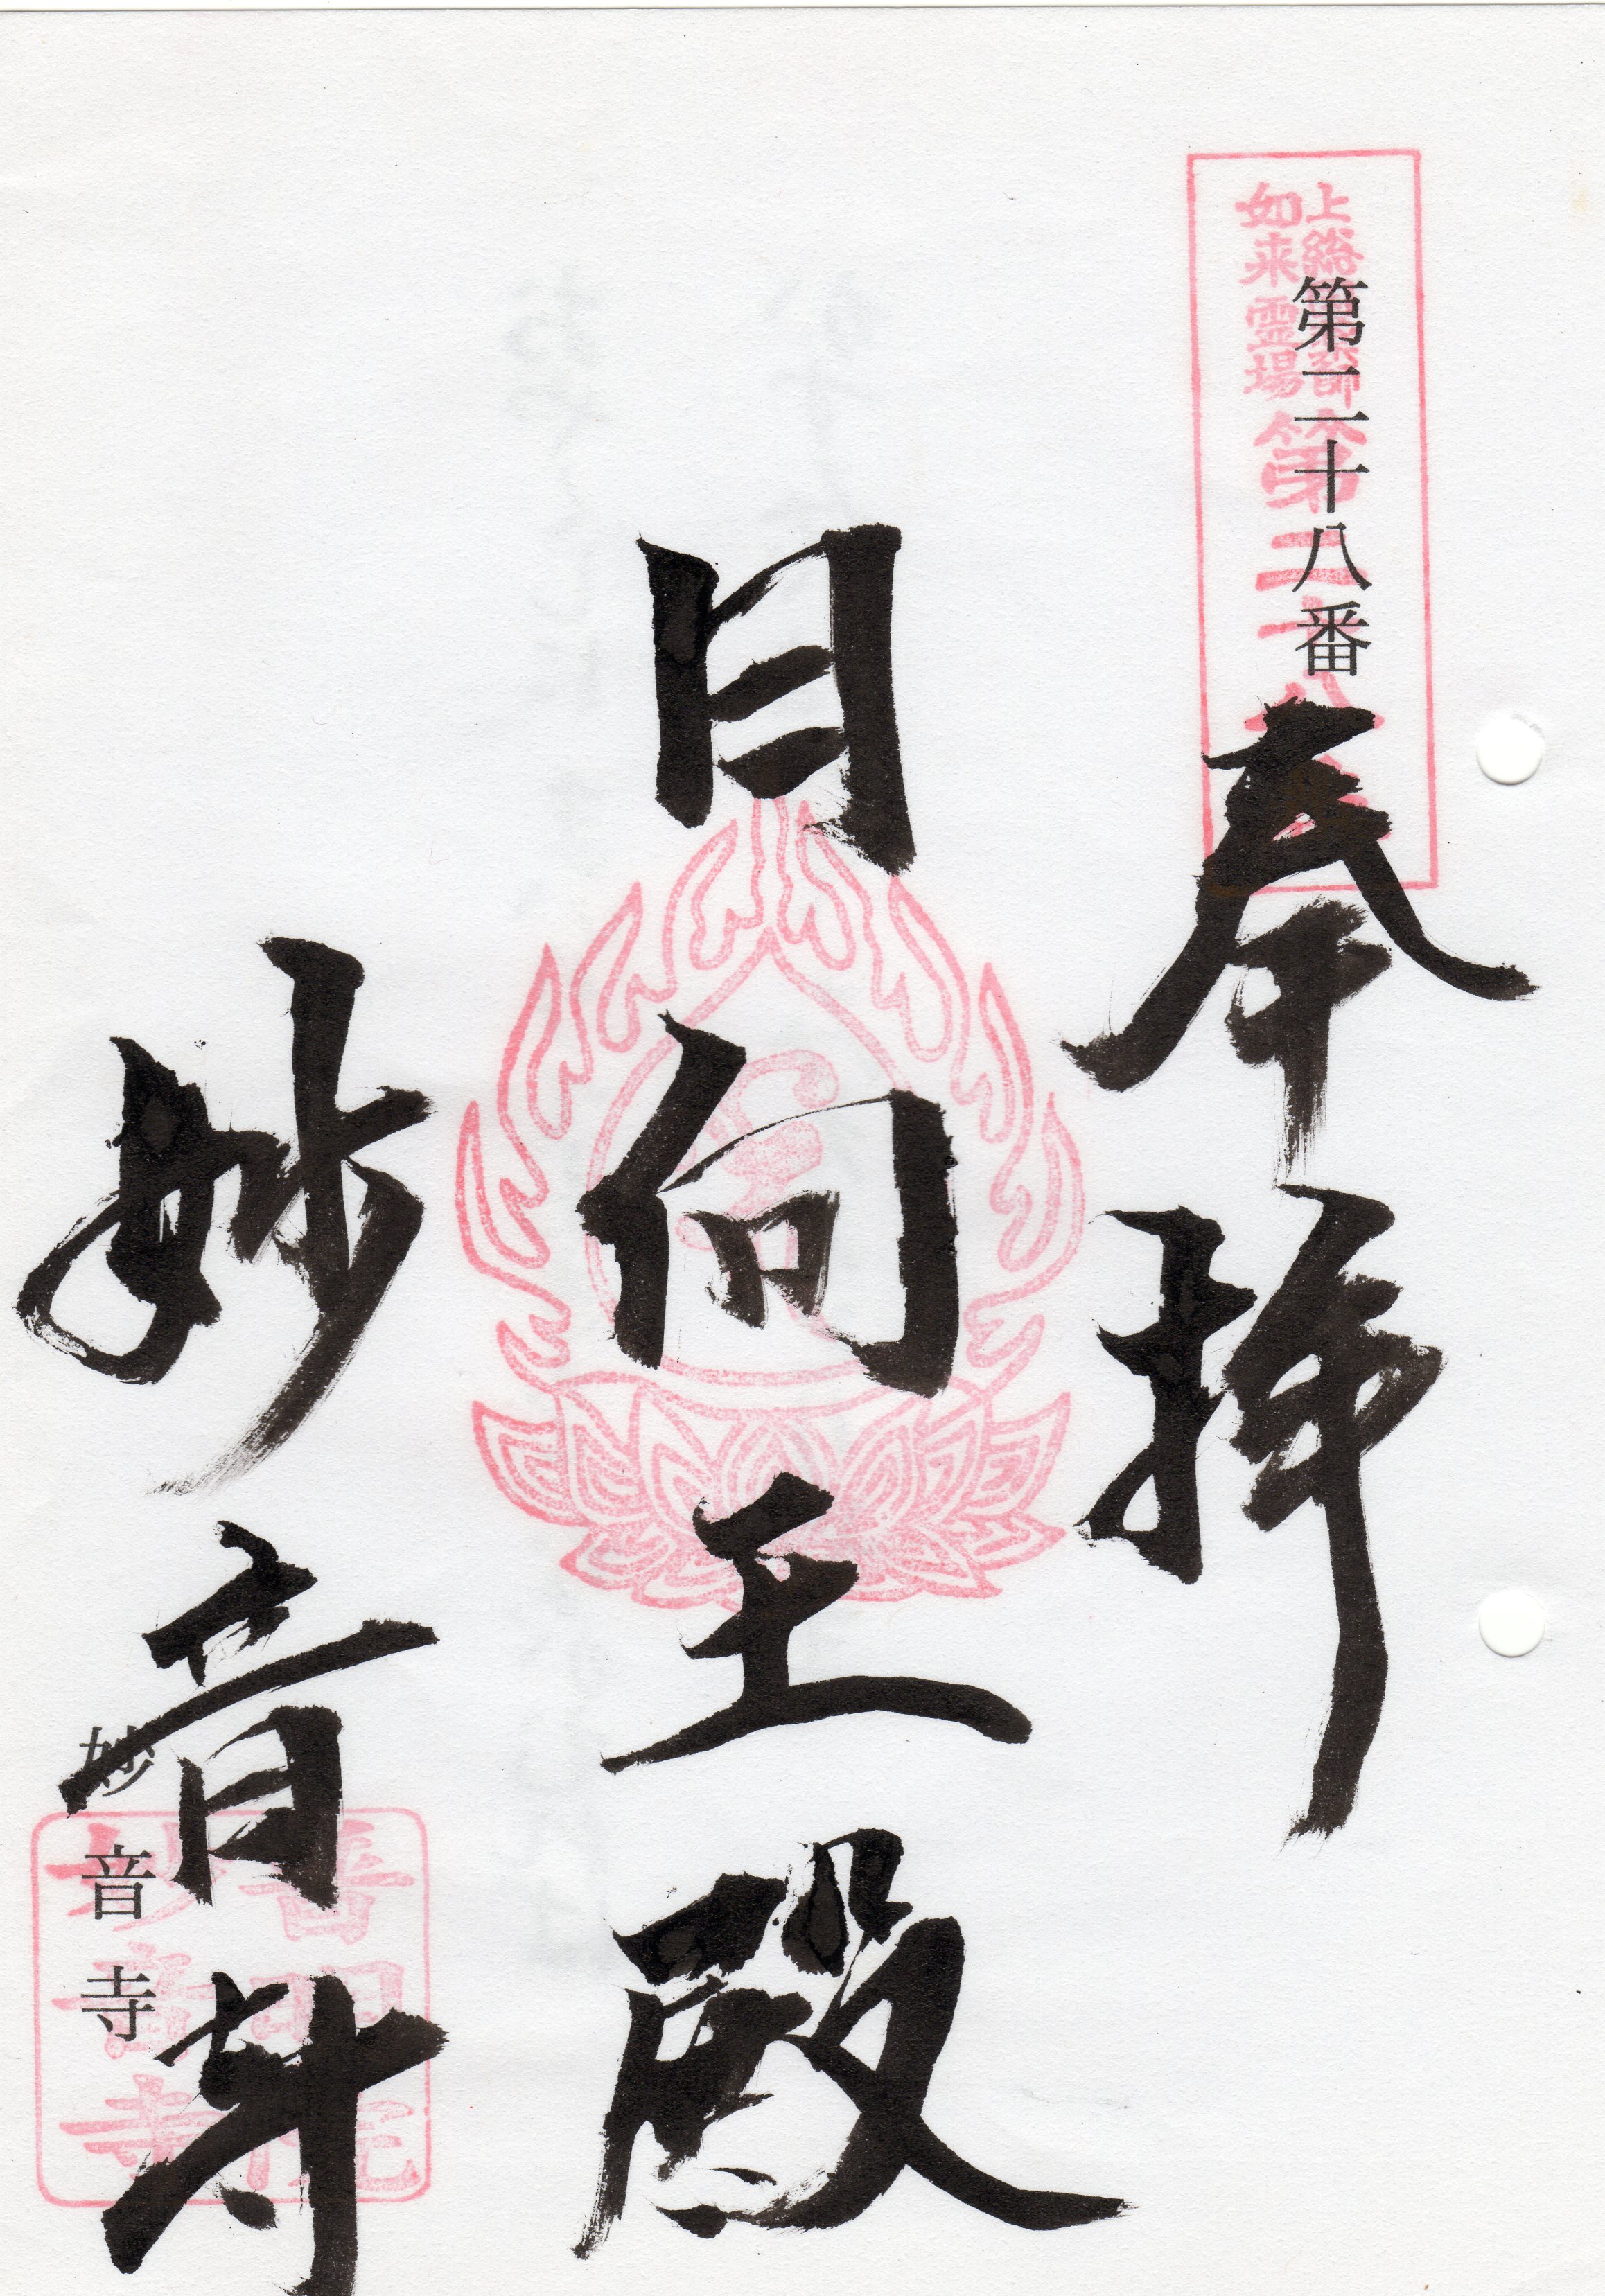 上総薬師
如来霊場
第二十八番
第二十八番
奉拝
日向王殿
妙音寺
妙音寺
普門院
妙音寺